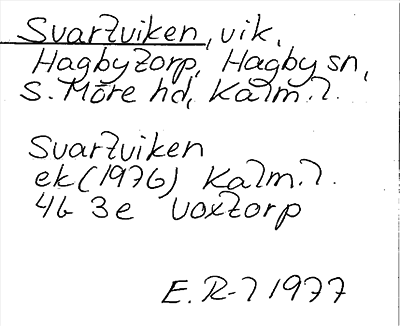 Svartviken, vik,
Hagbytorp, Hagby sn,
S. Möre hd, Kalm. l.
Svartviken
ek (1976) Kalm. l.
4G 3e Voxtorp
E. R-l 1977